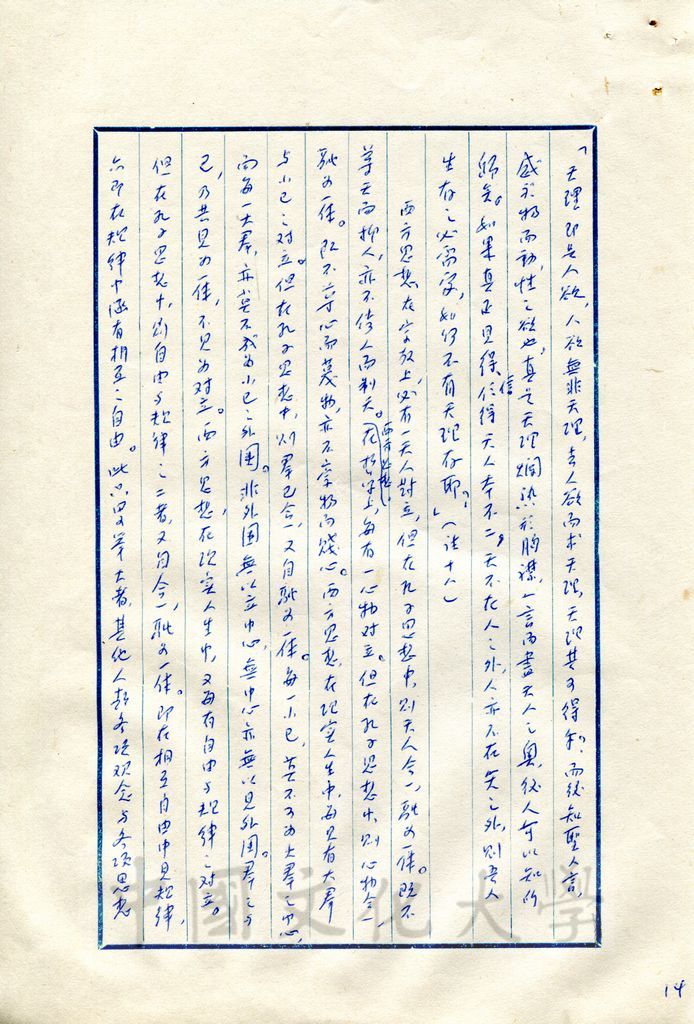 「天理即是人欲，人欲無非天理，去人欲而求天理，天理其可得乎？而後知聖人言，
感於物而動，性之欲也，真是天理爛熟於胸襟，一言而盡天人之奧，後人可以知所
歸矣。如果真正見得信得天人本不二，天不在人之外，人亦不在天之外，則吾人
生存之必需字，如何不有天理存耶？」（註十八）
西方思想在宗教上必有一天人對立，但在孔子思想中，則天人合一，融為一体。既不
尊天而抑人，亦不倚人而制天。西方思想在哲學上，每有一心物對立。但在孔子思想中，則心物合一，
融為一体。既不尊心而蔑物，亦不宰物而賤心。西方思想，在現實人生中，每見有大羣
与小己之對立。但在孔子思想中，則羣己合一，又自融為一体。每一小己，莫不可為大羣之中心，
而每一大羣，亦莫不成為小己之外圍。非外圍無以立中心，無中心亦無以見外圍。羣之与
己，乃共見為一体，不見為對立。西方思想，在現實人生中，又每有自由与規律之對立。
但在孔子思想中，則自由与規律之二者，又自合一，融为一体。即在相互自由中見規律，
亦即在規律中涵有相互之自由。此只略舉大者，其他人類各項观念与各項思想
中國文化大學
14